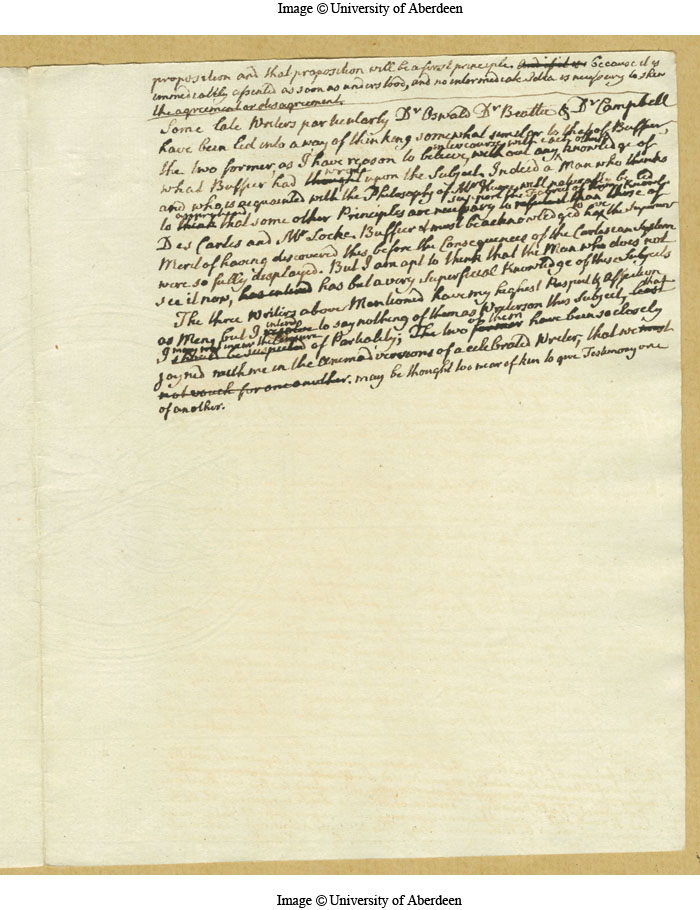 Image © University of Aberdeen
proposition and that proposition will be a first principle. And if it is because it is
immediatly assented as soon as understood, and no intermediate Idea is necessary to shew
the agreement or disagreement.
Some late Writers particularly Dr Oswald Dr Beattie & Dr Campbell
have been led into a way of thinking somewhat similar to that of Buffier,
intercourse with each other
the two former, as I have reason to believe, with out any knowledge of
wrote
what Buffier had thought upon the Subject. Indeed a Man who thinks
and who is acquainted with the Philosophy of Mr Hume will naturally be led
apprehend
to think that some other Principles are necessary to than those of
Des Cartes and Mr Locke. Buffier must be acknowledged to have the
Merit of having discovered this, before the Consequences of the Cartesian System
were so fully displayed. But I am apt to think that the Man who does not
see it now, has but a very Superficial Knowledge of these Subjects
The three Writers above Mentioned have my highest Respect & Affection
intend
as Men, but I to say nothing of them as Writers on this Subject, least that
I may not incur the Censure of them
I should be suspected of Partiality; The two former have been so closely
joyned with me in the Animadversions of a celebrated Writer, that we must
not vouch for one another. may be thought too near of kin to give Testimony one
of another.
Image © University of Aberdeen